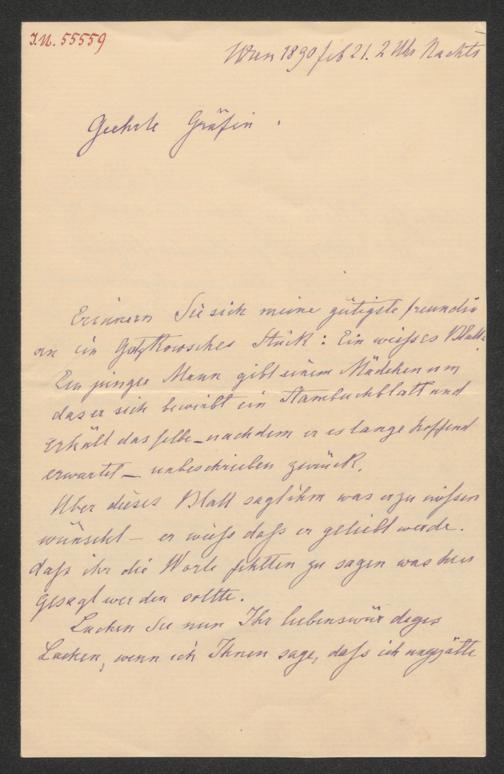 I.N. 55559
Wien 1890 feb 21. 2 Uhr Nachts
Geehrte Gräfin.
Erinnern Sie sich meine gütigste freundin
an ein Gutzkowsches Stück: Ein weißes Blatt.
Ein junger Mann gibt einem Mädchen um
das er sich bewirbt ein Stambuchblatt und
erhält dasselbe – nachdem er es lange hoffend
erwartet – unbeschrieben zurück.
Aber dieses Blatt sagt ihm was er zu wissen
wünscht – er weiß daß er geliebt werde.
daß ihr die Worte fehlten zu sagen was hier
gesagt werden sollte.
Lachen Sie nun Ihr liebenswürdiges
Lachen, wenn ich Ihnen sage, daß ich